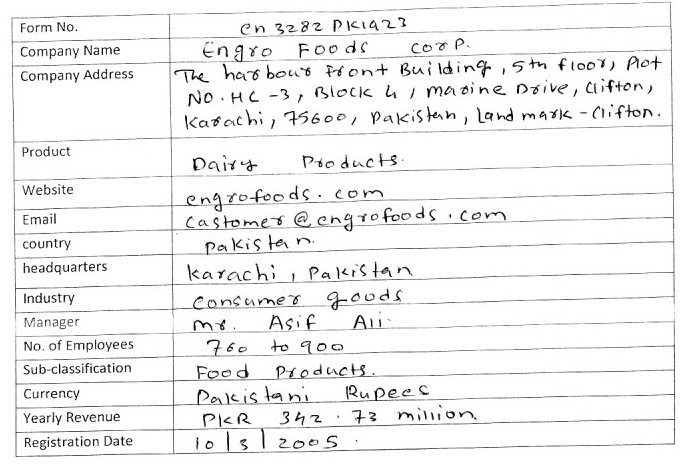 Form No. en 3282 PK1923
Company Name Engro Foods Corp.
Company Address The harbour Front Building, 5th floor, Plot
No. HC -3, Block 4, marine Drive, Clifton,
Karachi, 75600, Pakistan, Land mark - Clifton.
Product Dairy Products.
Website engrofoods.com
Email Castomer@engrofoods.com
country Pakistan.
headquarters Karachi, Pakistan
Industry Consumer goods
Manager mr. Asif Ali.
No. of Employees 760 to 900
Sub-classification Food Products.
Currency Pakistani Rupees
Yearly Revenue PKR 342.73 million.
Registration Date 10|3|2005.